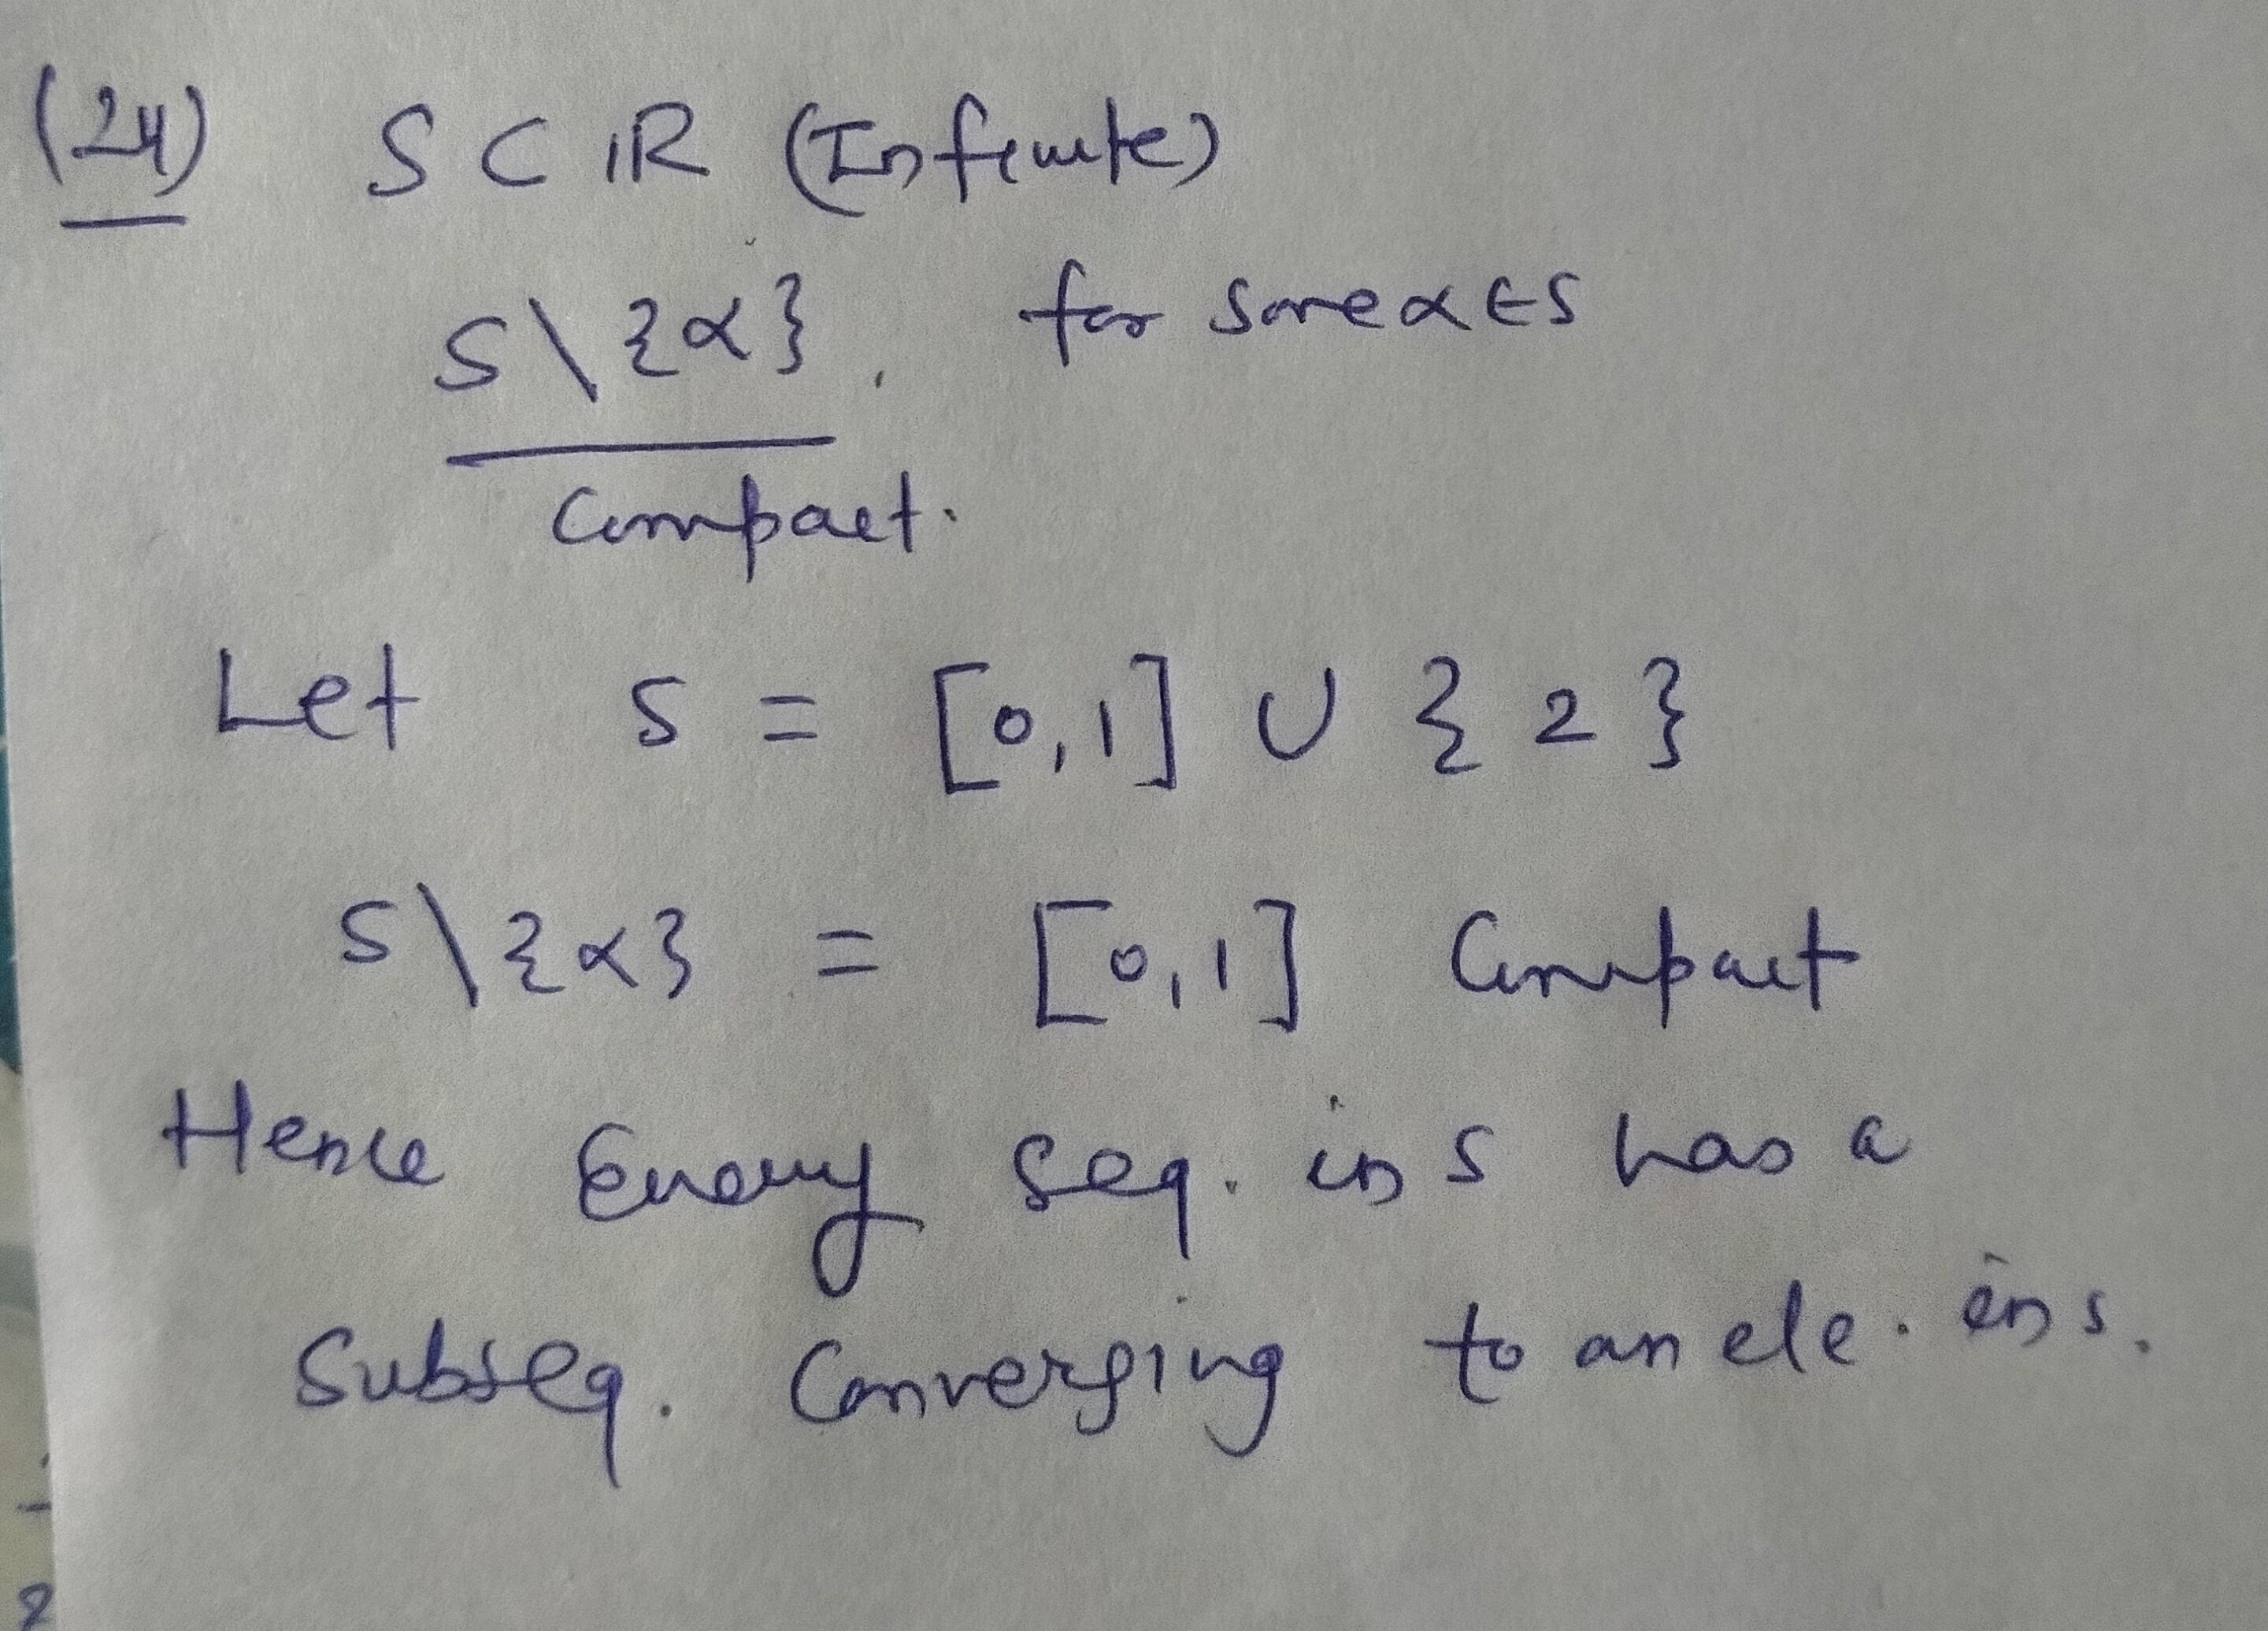 (24) S ⊂ ℝ (Infinite)
S\{α}, for some α ∈ S
Compact.
Let S = [0,1] ∪ {2}
S\{α} = [0,1] Compact
Hence Every seq. in S has a
Subseq. Converging to an ele. in S.
2